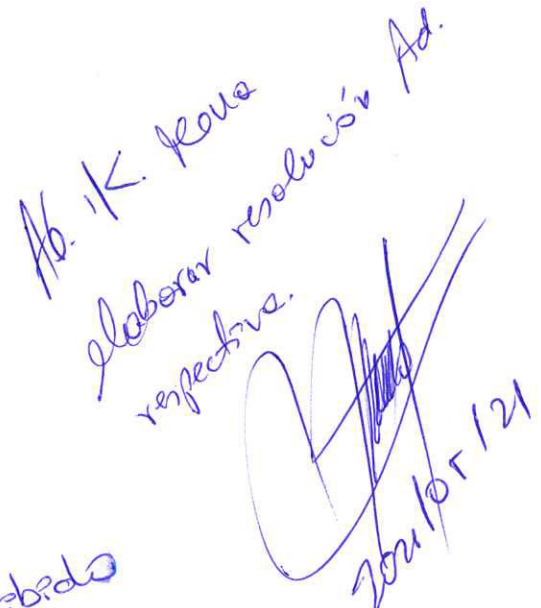 Ab. K. Mona
elaborar resolución Ad.
respectiva.
2021/05/21